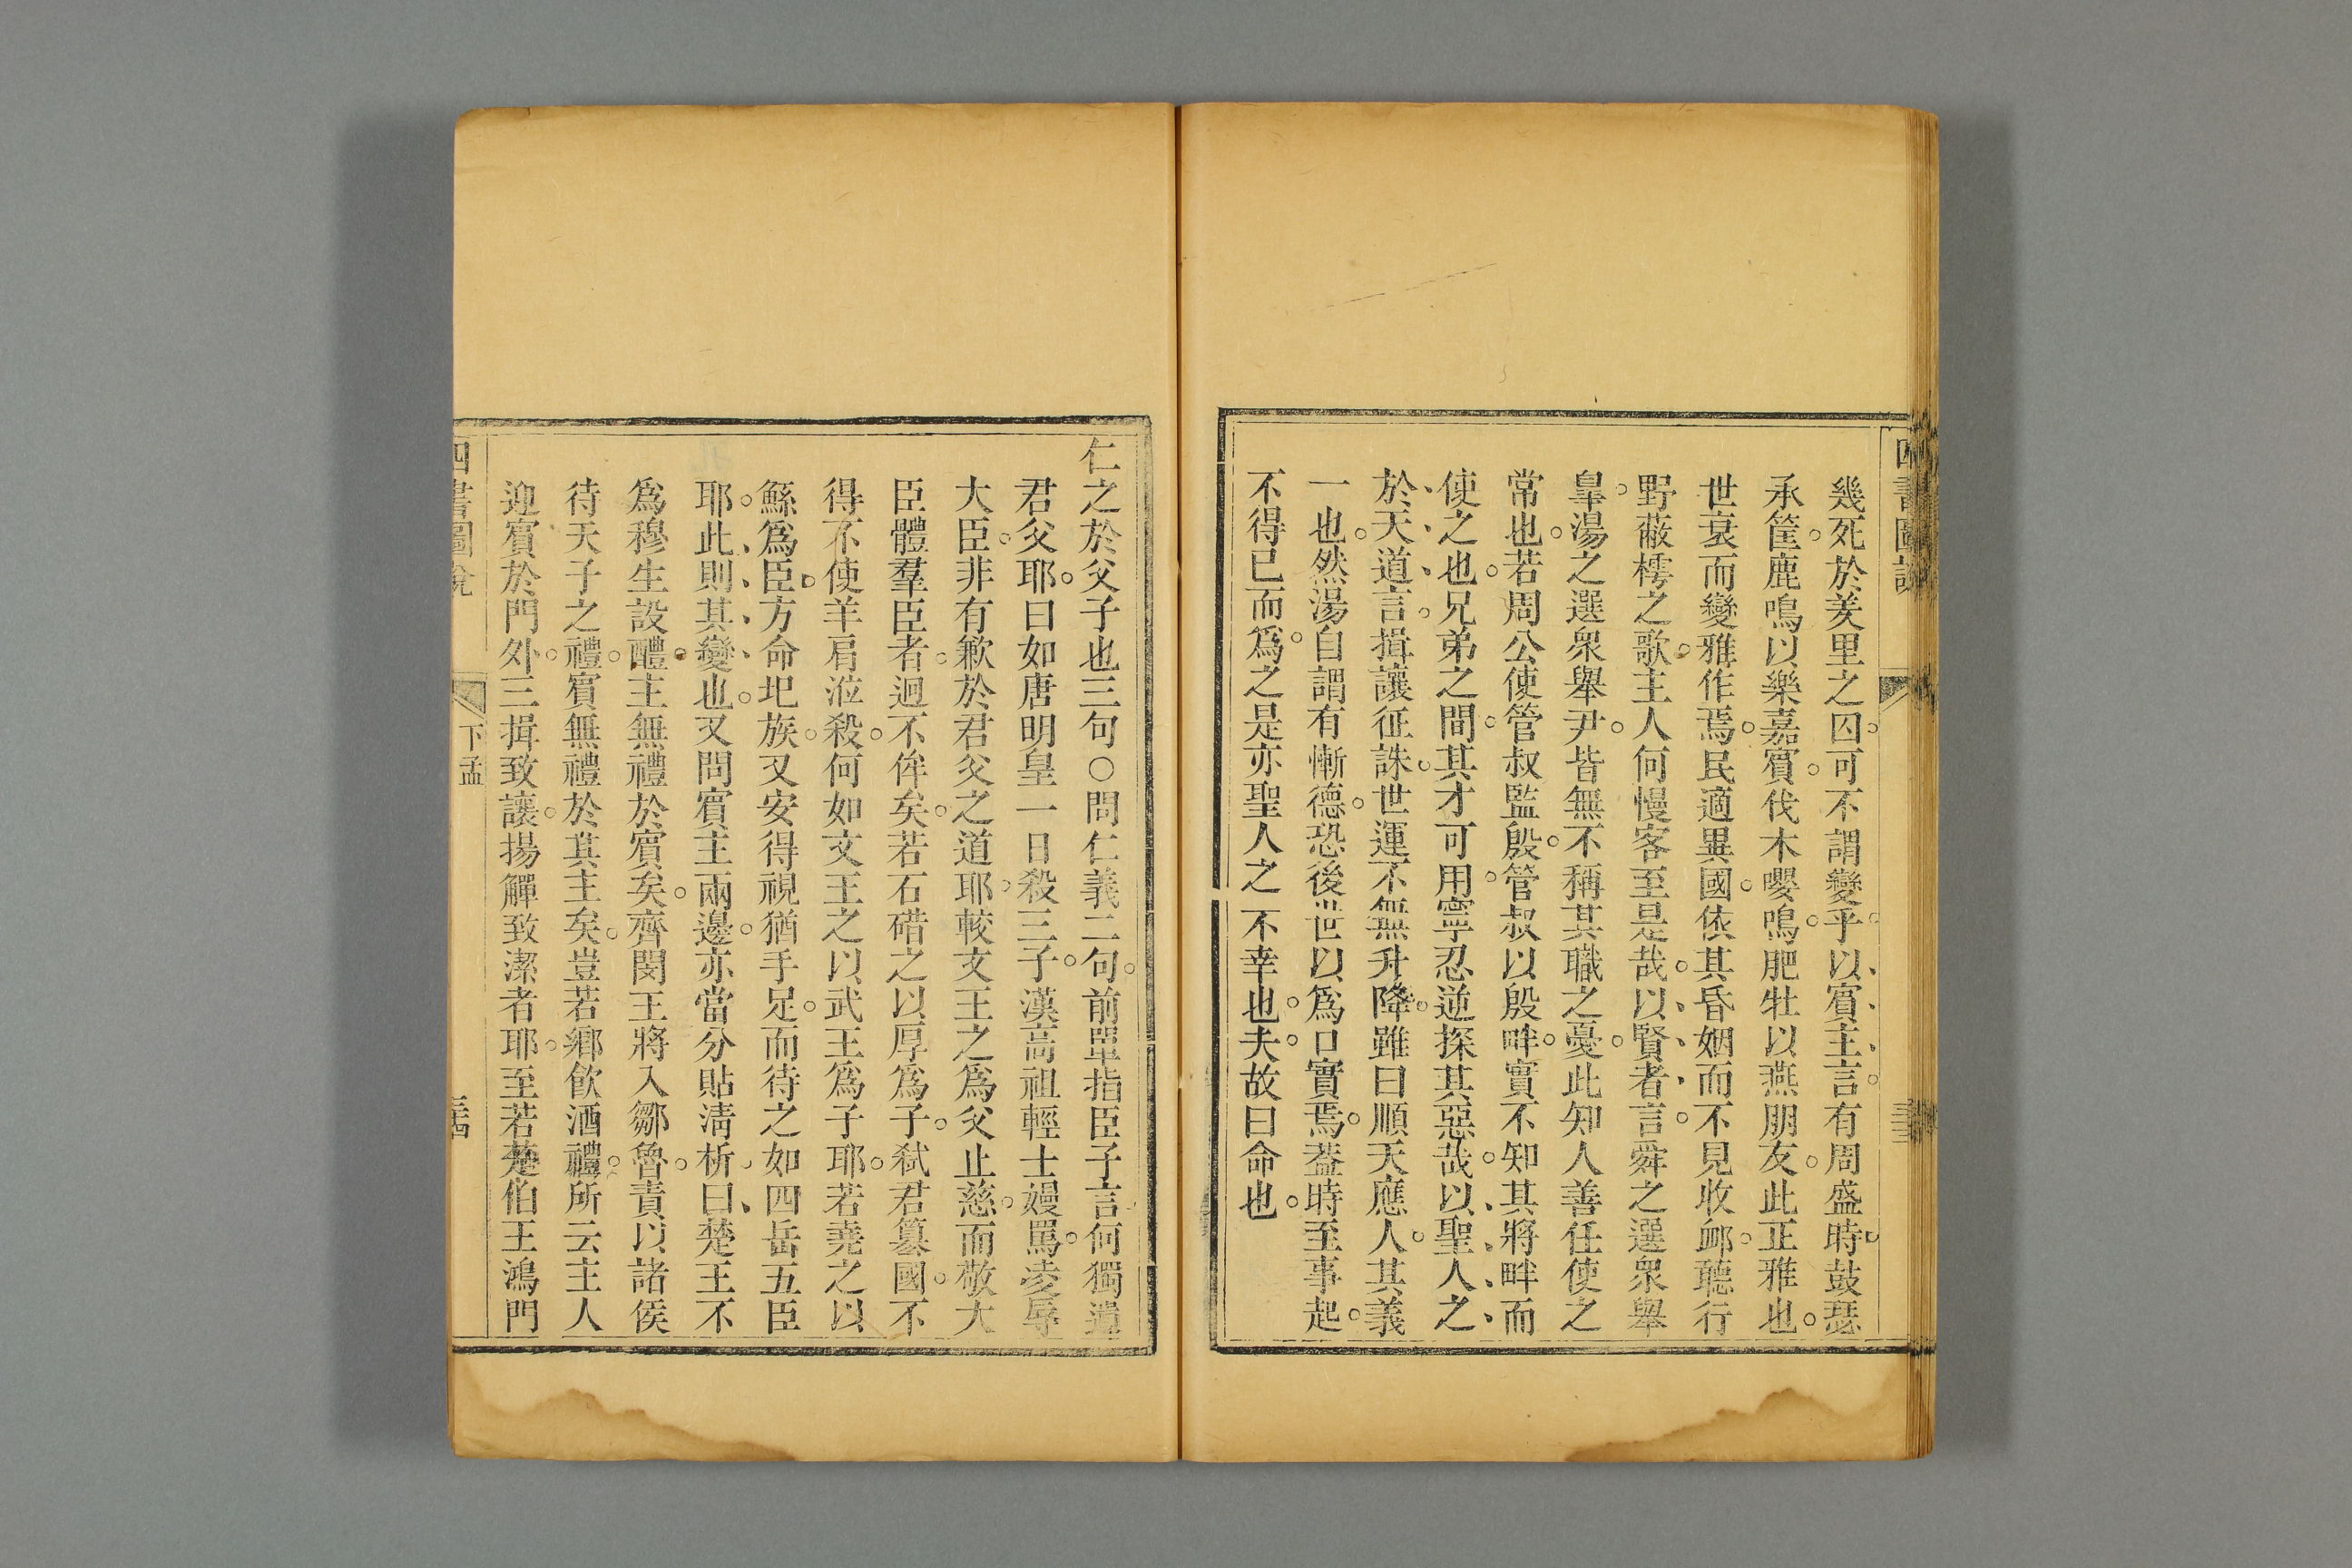 四書圖說
幾死於羑里之囚可不謂變乎以賓主言有周盛時鼓瑟
承筐鹿鳴以樂嘉賓伐木嚶鳴肥牡以燕朋友此正雅也
世衰而變雅作焉民適異國依其昏姻而不見收卹聽行
野蔽樗之歌主人何慢客至是哉以賢者言舜之選衆舉
臯湯之選衆舉尹皆無不稱其職之憂此知人善任使之
常也若周公使管叔監殷管叔以殷畔實不知其將畔而
使之也兄弟之間其才可用寧忍逆探其惡哉以聖人之
於天道言揖讓征誅世運不無升降雖曰順天應人其義
一也然湯自謂有慚德恐後世以爲口實焉葢時至事起
不得已而爲之是亦聖人之不幸也夫故曰命也
仁之於父子也三句○問仁義二句前單指臣子言何獨遺
君父耶曰如唐明皇一日殺三子漢高祖輕士嫚罵凌辱
大臣非有歉於君父之道耶較文王之爲父止慈而敬大
臣體羣臣者迥不侔矣若石碏之以厚爲子弑君篡國不
得不使羊肩涖殺何如文王之以武王爲子耶若堯之以
鯀爲臣方命圯族又安得視猶手足而待之如四岳五臣
耶此則其變也又問賓主兩邊亦當分貼淸析曰楚王不
爲穆生設醴主無禮於賓矣齊閔王將入鄒魯責以諸侯
待天子之禮賓無禮於其主矣豈若鄕飮酒禮所云主人
迎賓於門外三揖致讓揚觶致潔者耶至若楚伯王鴻門
四書圖說
下孟